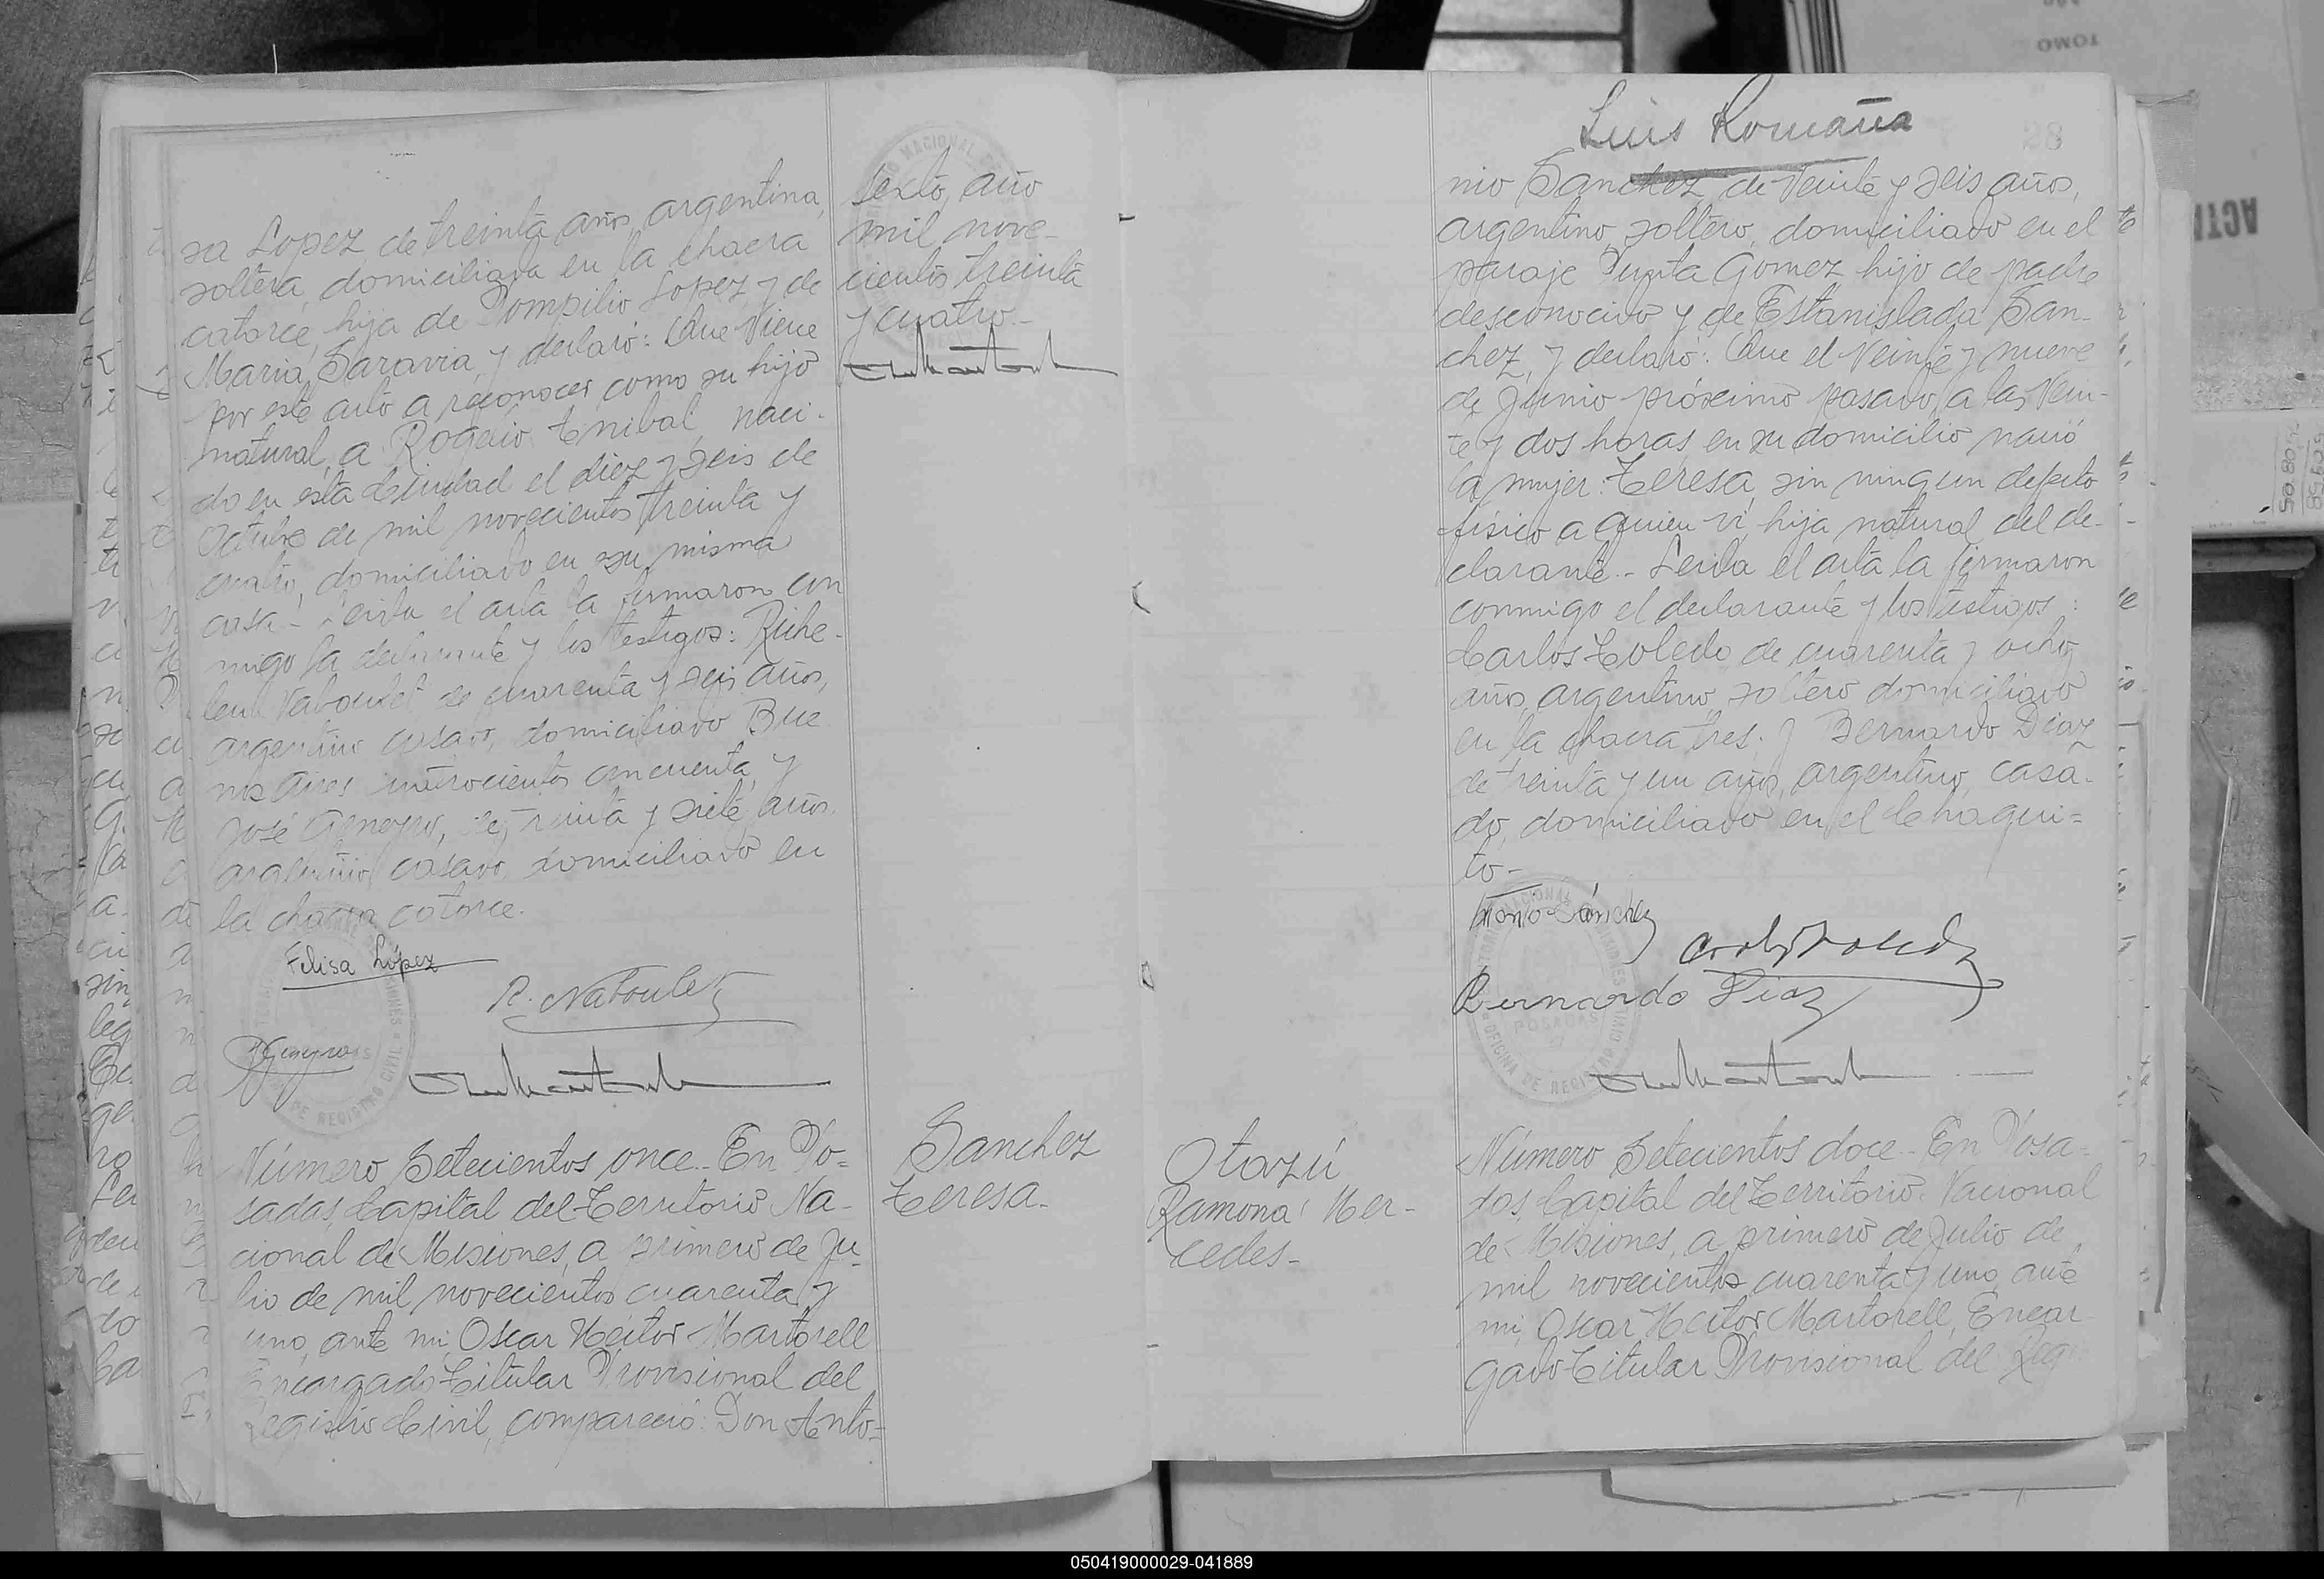 sa Lopez, de treinta años, argentina,
soltera, domiciliada en la chacra
catorce, hija de Pompilio Lopez, y de
Maria Saravia, y declaró: Que viene
por este acto a reconocer como su hijo
natural, a Rogelio Anibal, naci-
do en esta Ciudad el diez y seis de
Octubre de mil novecientos treinta y
cuatro, domiciliado en su misma
casa.- Leida el acta la firmaron con
migo la declarante y los testigos: Riche-
lieu Naboulet de cuarenta y seis años,
argentino casado, domiciliado Bue
nos Aires cuatrocientos cincuenta, y
José de treinta y siete años,
argentino, casado, domiciliado en
la chacra catorce.
Felisa López
R. Naboulet
sexto, año
mil nove-
cientos treinta
y cuatro.-
Número Setecientos once.- En Po=
sadas, Capital del Territorio Na-
cional de Misiones, a primero de Ju-
lio de mil novecientos cuarenta y
uno, ante mi, Oscar Hector Martorell
Encargado Titular Provisional del
Registro Civil, compareció: Don Anto=
Sanchez
Teresa.-
Luis Romaña
28
nio Sanchez, de veinte y seis años,
argentino, soltero, domiciliado en el
paraje Punta Gomez, hijo de padre
desconocido y de Estanislada San-
chez, y declaró: Que el veinte y nueve
de Junio próximo pasado, a las vein-
te y dos horas, en su domicilio nació
la mujer: Teresa, sin ningun defecto
fisico a quien ví, hija natural del de-
clarante.- Leida el acta la firmaron
conmigo el declarante y los testigos:
Carlos Toledo, de cuarenta y ocho
años, argentino, soltero domiciliado
en la chacra tres. y Bernardo Diaz
de treinta y un años, argentino, casa-
do, domiciliado en el Chaqui=
to-
Antonio Sánchez
Bernardo Diaz
Otazú
Ramona Mer-
cedes-
Número Setecientos doce.- En Posa-
das, Capital del Territorio Nacional
de Misiones, a primero de Julio de
mil novecientos cuarenta y uno, ante
mi, Oscar Hector Martorell, Encar-
gado Titular Provisional del Reg
TOMO
050419000029-041889